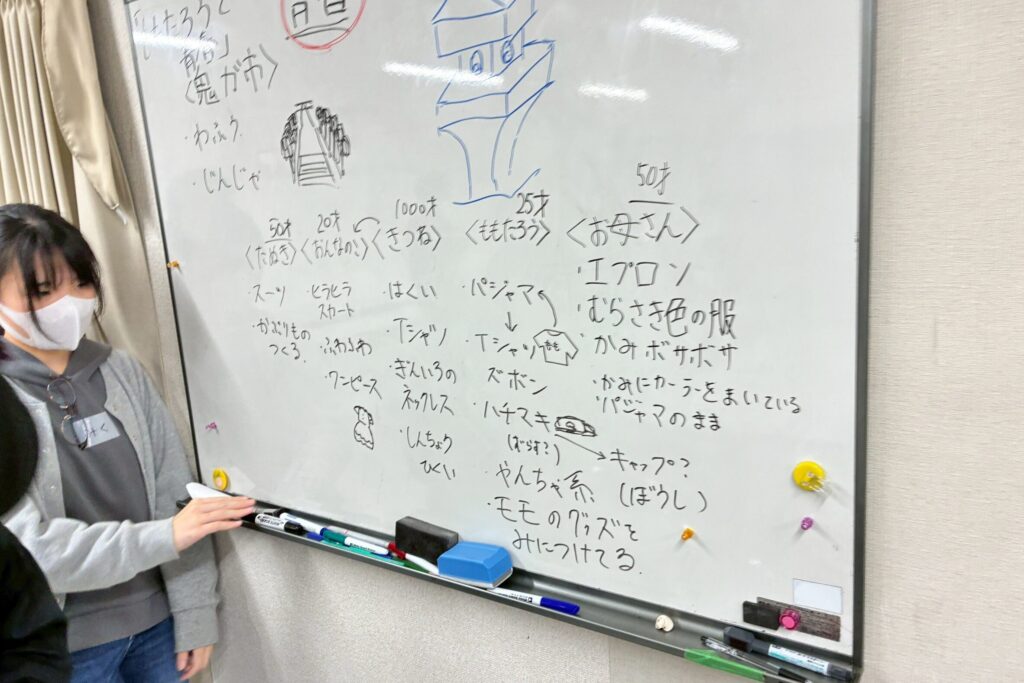 月音
ももたろうと
青春」
〈鬼が市〉
・わふう
・じんじゃ
50才
〈たぬき〉
・スーツ
・かぶりもの
つくる
20才
〈おんなのこ〉
・ヒラヒラ
スカート
・ふわふわ
・ワンピース
1000才
〈きつね〉
・はくい
・Tシャツ
・ぎんいろの
ネックレス
・しんちょう
ひくい
25才
〈ももたろう〉
・パジャマ
・Tシャツ
もも
ズボン
・ハチマキ
(ずらす?)
キャップ?
(ぼうし)
・やんちゃ系
・モモのグッズを
みにつけてる
50才
〈お母さん〉
・エプロン
・むらさき色の服
・かみボサボサ
・かみにカーラーをまいている
・パジャマのまま